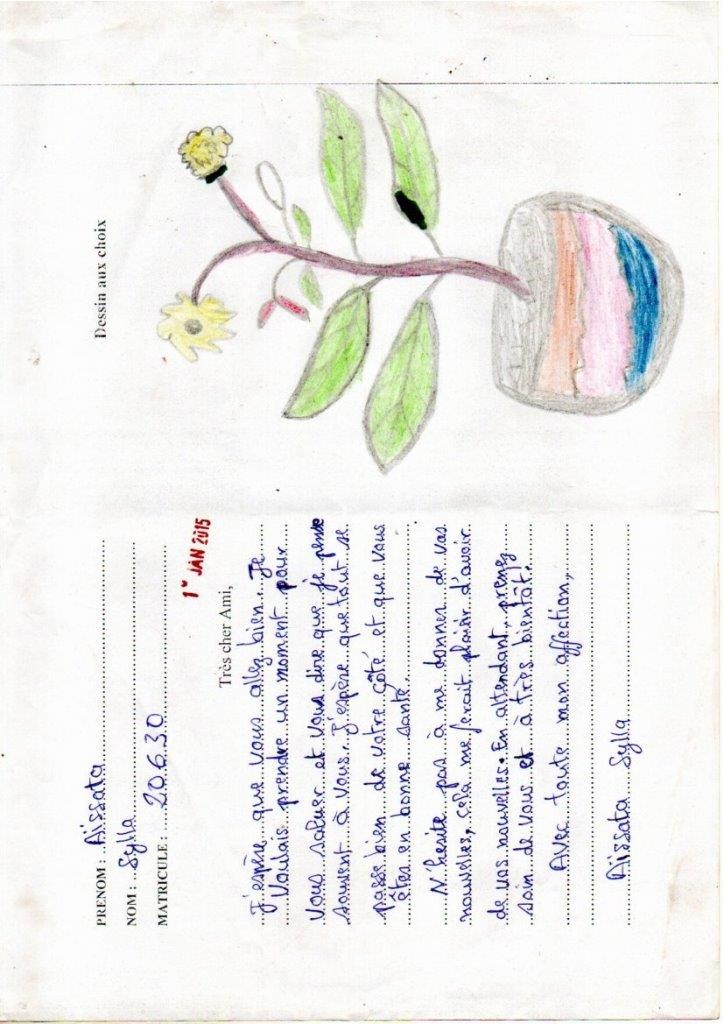 PRENOM : Aïssata
NOM : Sylla
MATRICULE : 20630
1er JAN 2015
Très cher Ami,
J'espère que vous allez bien. Je
voulais prendre un moment pour
vous saluer et vous dire que je pense
souvent à vous. J'espère que tout se
passe bien de votre côté et que vous
êtes en bonne santé.
N'hesite pas à me donner de vos
nouvelles, cela me ferait plaisir d'avoir
de vos nouvelles. En attendant, prenez
soin de vous et à très bientôt.
Avec toute mon affection,
Aïssata Sylla
Dessin aux choix